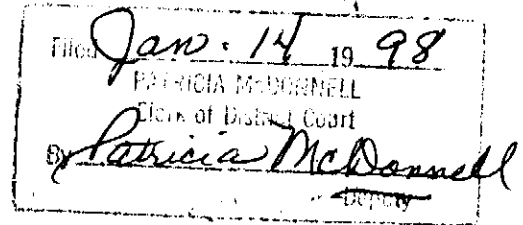 Filed Jan. 14 19 98
PATRICIA McDONNELL
Clerk of District Court
By Patricia McDonnell
Deputy